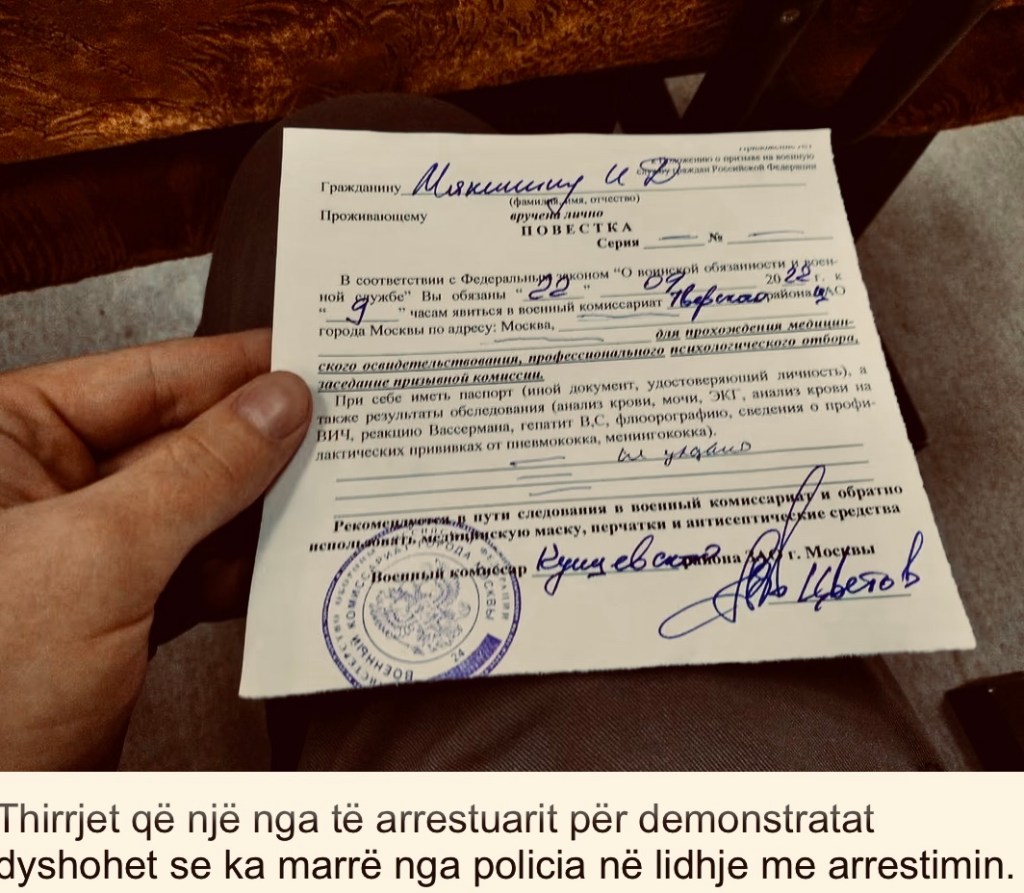 службу граждан Российской Федерации
Гражданину Мякишину И Д
(фамилия, имя, отчество)
Проживающему вручена лично
ПОВЕСТКА
Серия №
В соответствии с Федеральным законом "О воинской обязанности и воен-
ной службе" Вы обязаны "22" 09 2022 г. к
"9" часам явиться в военный комиссариат Тверской района ЦАО
города Москвы по адресу: Москва, для прохождения медицин-
ского освидетельствования, профессионального психологического отбора,
заседание призывной комиссии.
При себе иметь паспорт (иной документ, удостоверяющий личность), а
также результаты обследования (анализ крови, мочи, ЭКГ, анализ крови на
ВИЧ, реакцию Вассермана, гепатит В,С, флюорографию, сведения о профи-
лактических прививках от пневмококка, менингококка).
Рекомендуется в пути следования в военный комиссариат и обратно
использовать медицинскую маску, перчатки и антисептические средства
Военный комиссар района ЗАО г. Москвы
Цветов
ВОЕННЫЙ КОМИССАРИАТ ГОРОДА МОСКВЫ
24
Thirrjet që një nga të arrestuarit për demonstratat
dyshohet se ka marrë nga policia në lidhje me arrestimin.